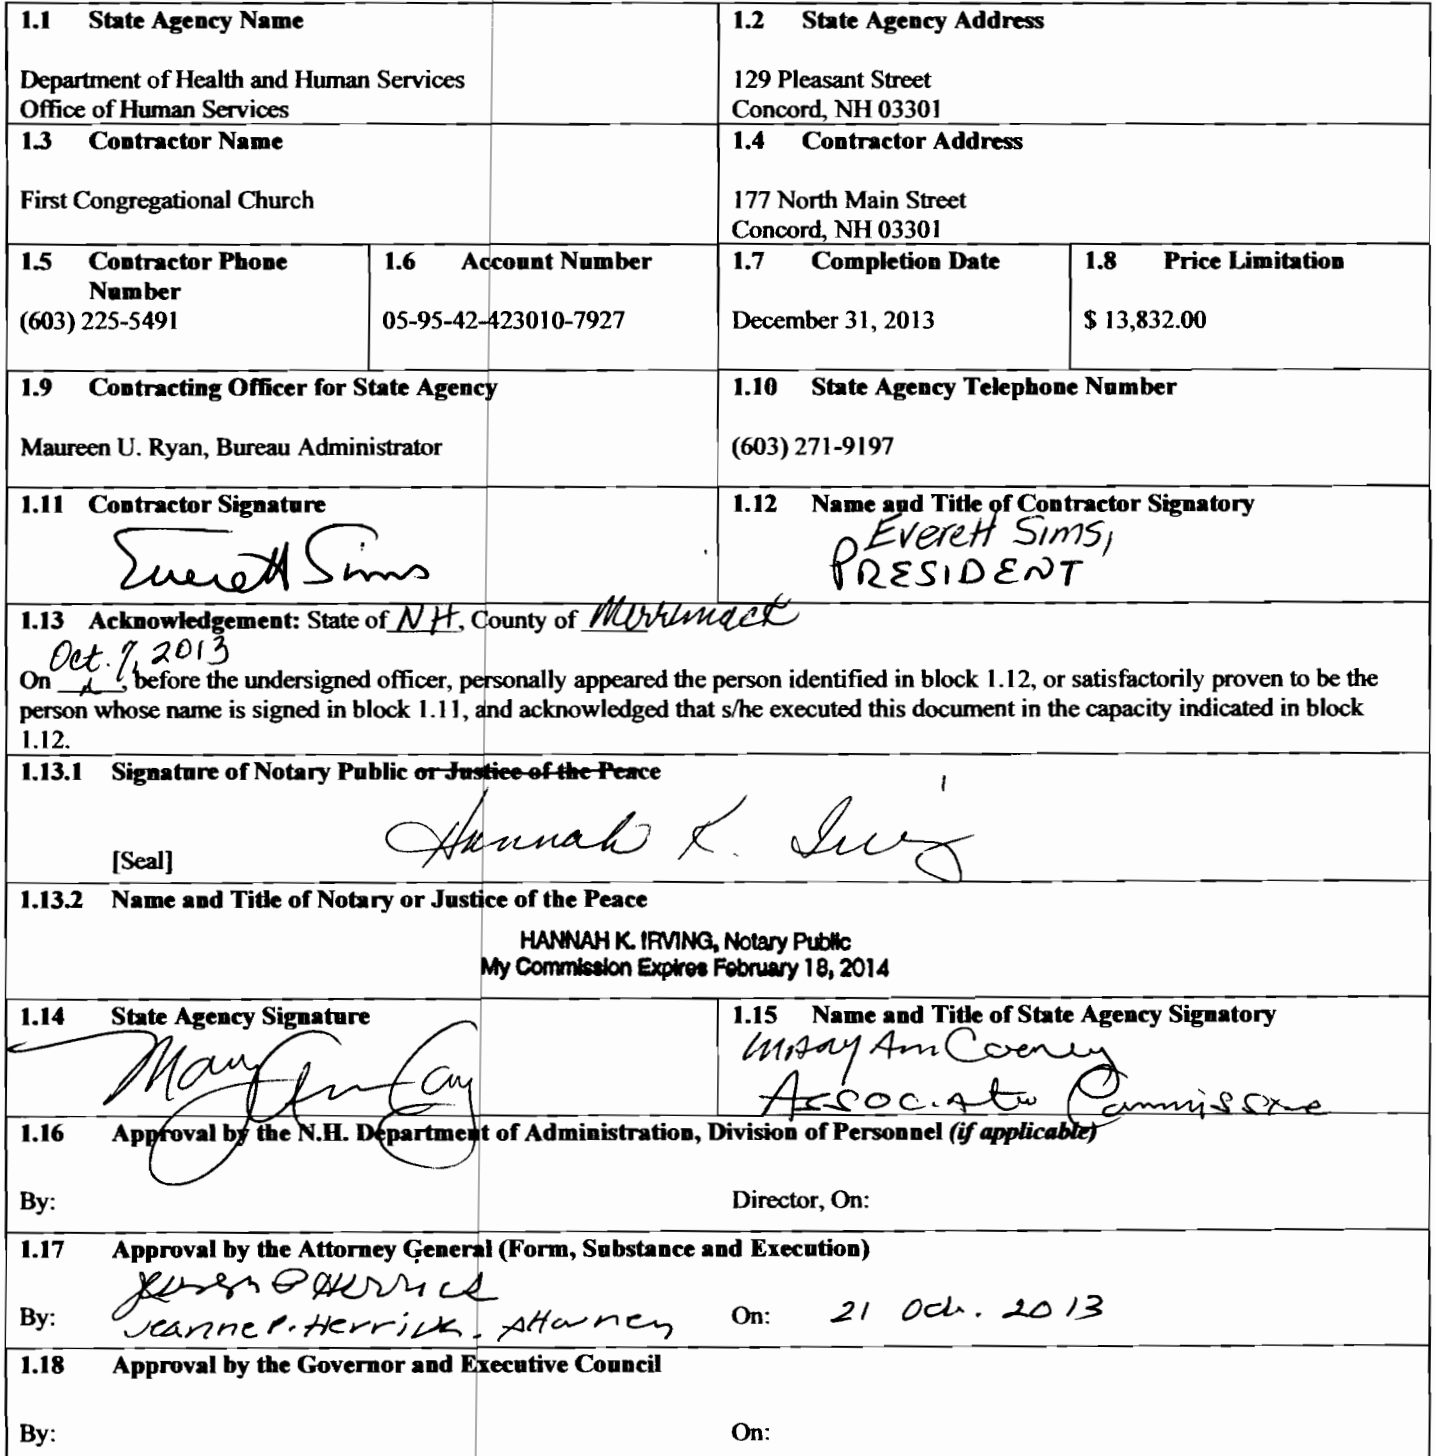 1.1 State Agency Name
Department of Health and Human Services
Office of Human Services
1.2 State Agency Address
129 Pleasant Street
Concord, NH 03301
1.3 Contractor Name
First Congregational Church
1.4 Contractor Address
177 North Main Street
Concord, NH 03301
1.5 Contractor Phone
Number
(603) 225-5491
1.6 Account Number
05-95-42-423010-7927
1.7 Completion Date
December 31, 2013
1.8 Price Limitation
$ 13,832.00
1.9 Contracting Officer for State Agency
Maureen U. Ryan, Bureau Administrator
1.10 State Agency Telephone Number
(603) 271-9197
1.11 Contractor Signature
Everett Sims
1.12 Name and Title of Contractor Signatory
Everett Sims,
PRESIDENT
1.13 Acknowledgement: State of NH, County of Merrimack
Oct. 7, 2013
On , before the undersigned officer, personally appeared the person identified in block 1.12, or satisfactorily proven to be the
person whose name is signed in block 1.11, and acknowledged that s/he executed this document in the capacity indicated in block
1.12.
1.13.1 Signature of Notary Public or Justice of the Peace
Hannah K. Irving
[Seal]
1.13.2 Name and Title of Notary or Justice of the Peace
HANNAH K. IRVING, Notary Public
My Commission Expires February 18, 2014
1.14 State Agency Signature
Mary Ann
1.15 Name and Title of State Agency Signatory
Mary Ann Cooney
Associate Commissioner
1.16 Approval by the N.H. Department of Administration, Division of Personnel (if applicable)
By:
Director, On:
1.17 Approval by the Attorney General (Form, Substance and Execution)
Jeanne P. Herrick
By: Jeanne P. Herrick, Attorney
On: 21 Oct. 2013
1.18 Approval by the Governor and Executive Council
By:
On: